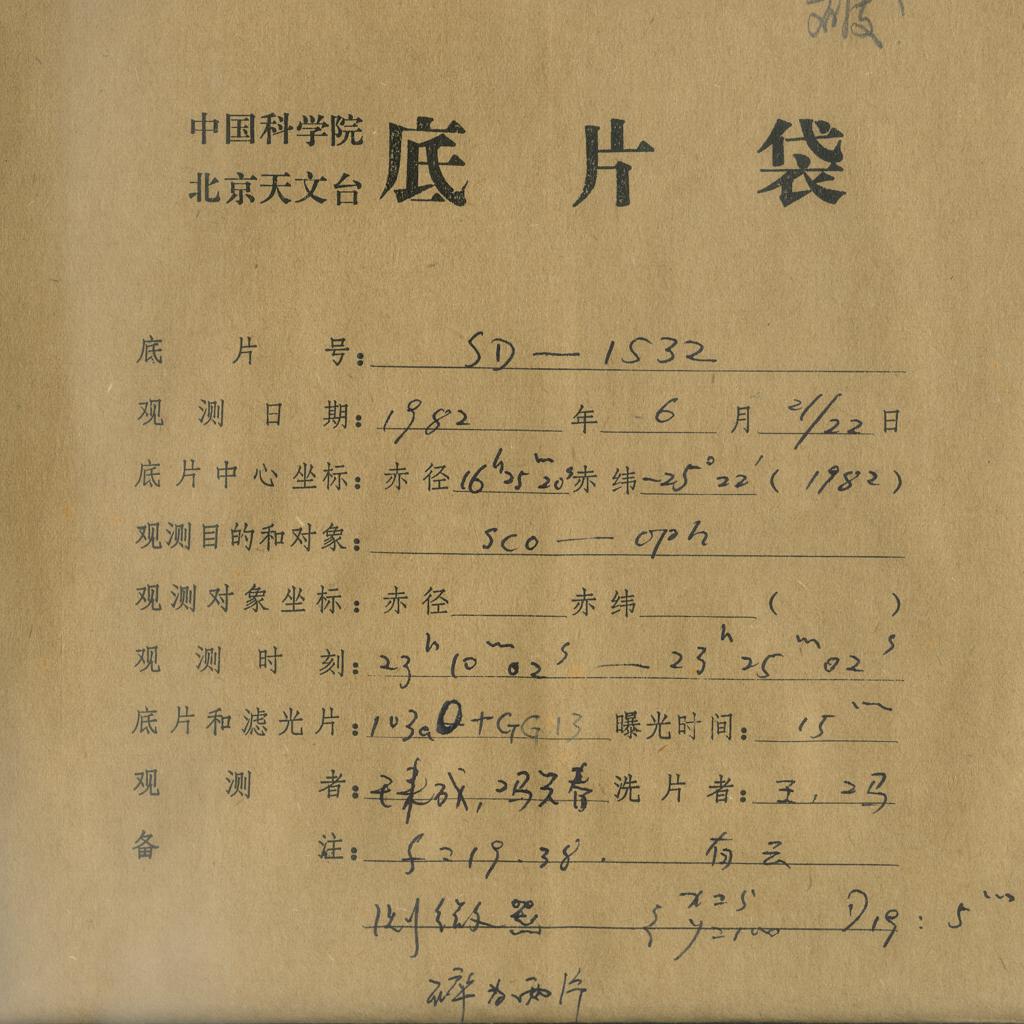 破
中国科学院
北京天文台
底片袋
底片号: SD — 1532
观测日期: 1982 年 6 月 21/22 日
底片中心坐标: 赤径 16h25m20s 赤纬 -25°22′ (1982)
观测目的和对象: Sco — oph
观测对象坐标: 赤径 赤纬 ( )
观测时刻: 23h10m02s — 23h25m02s
底片和滤光片: 103aO+GG13 曝光时间: 15m
观测者: 冯 春 洗片者: 王, 冯
备注: f=19.38. 有云
x=5 y=100 D19: 5m
碎为两片